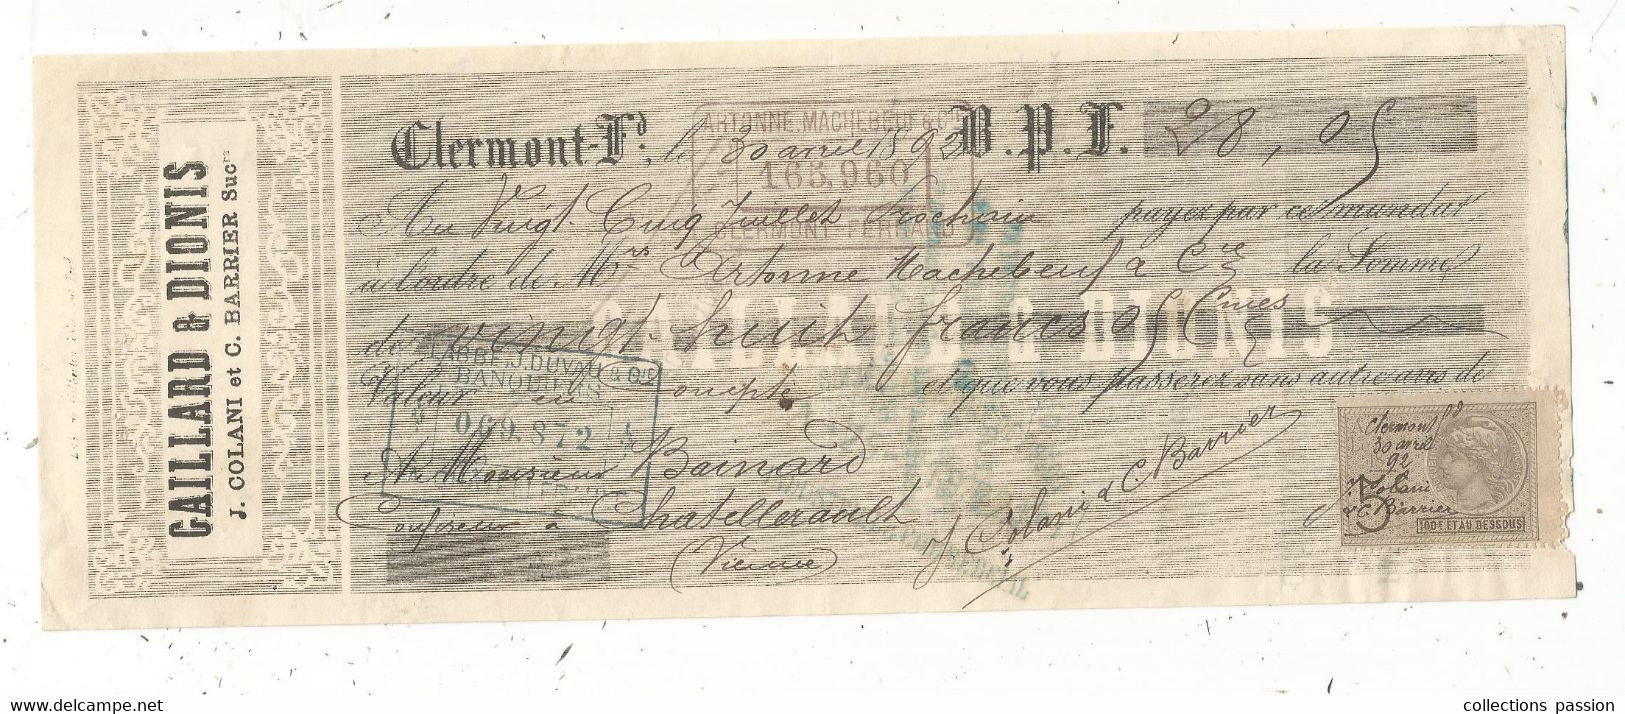 GAILLARD & DIONIS
J. COLANI et C. BARRIER Sucrs
Clermont-Fd, le 30 avril 1892 B.P.F. 28,05
ARTONNE, MACHEBEUF & Cie
165.960
CLERMONT-FERRAND
Au Vingt Cinq Juillet Prochain payez par ce mandat
à l'ordre de Mrs Artonne Machebeuf & Cie la Somme
de vingt huit francs 05 Cmes
GAILLARD & DIONIS
Valeur en compte et que vous passerez sans autre avis de
LABBÉ, J. DUVAU & Cie
BANQUIERS
069.872
A Monsieur Bainard
Confiseur à Chatellerault
(Vienne)
J. Colani & C. Barrier
Clermont Fd
30 avril
92
J. Colani
& C. Barrier
5
100F ET AU DESSOUS
delcampe.net
collections passion